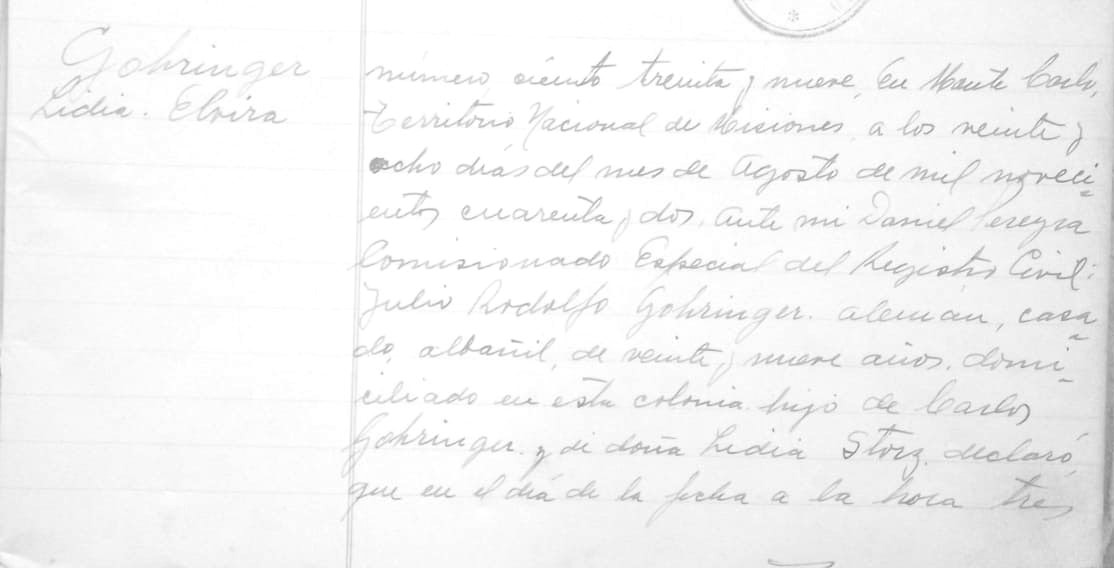 Gohringer
Lidia. Elvira
número, ciento treinta y nueve, En Monte Carlo,
Territorio Nacional de Misiones, a los veinte y
ocho días del mes de Agosto de mil noveci=
entos cuarenta y dos. ante mi Daniel Pereyra
Comisionado Especial del Registro Civil:
Julio Rodolfo Gohringer. alemán, casa=
do, albañil, de veinte y nueve años, domi=
ciliado en esta colonia hijo de Carlos
Gohringer. y de doña Lidia Storz. declaró,
que en el día de la fecha a la hora tres